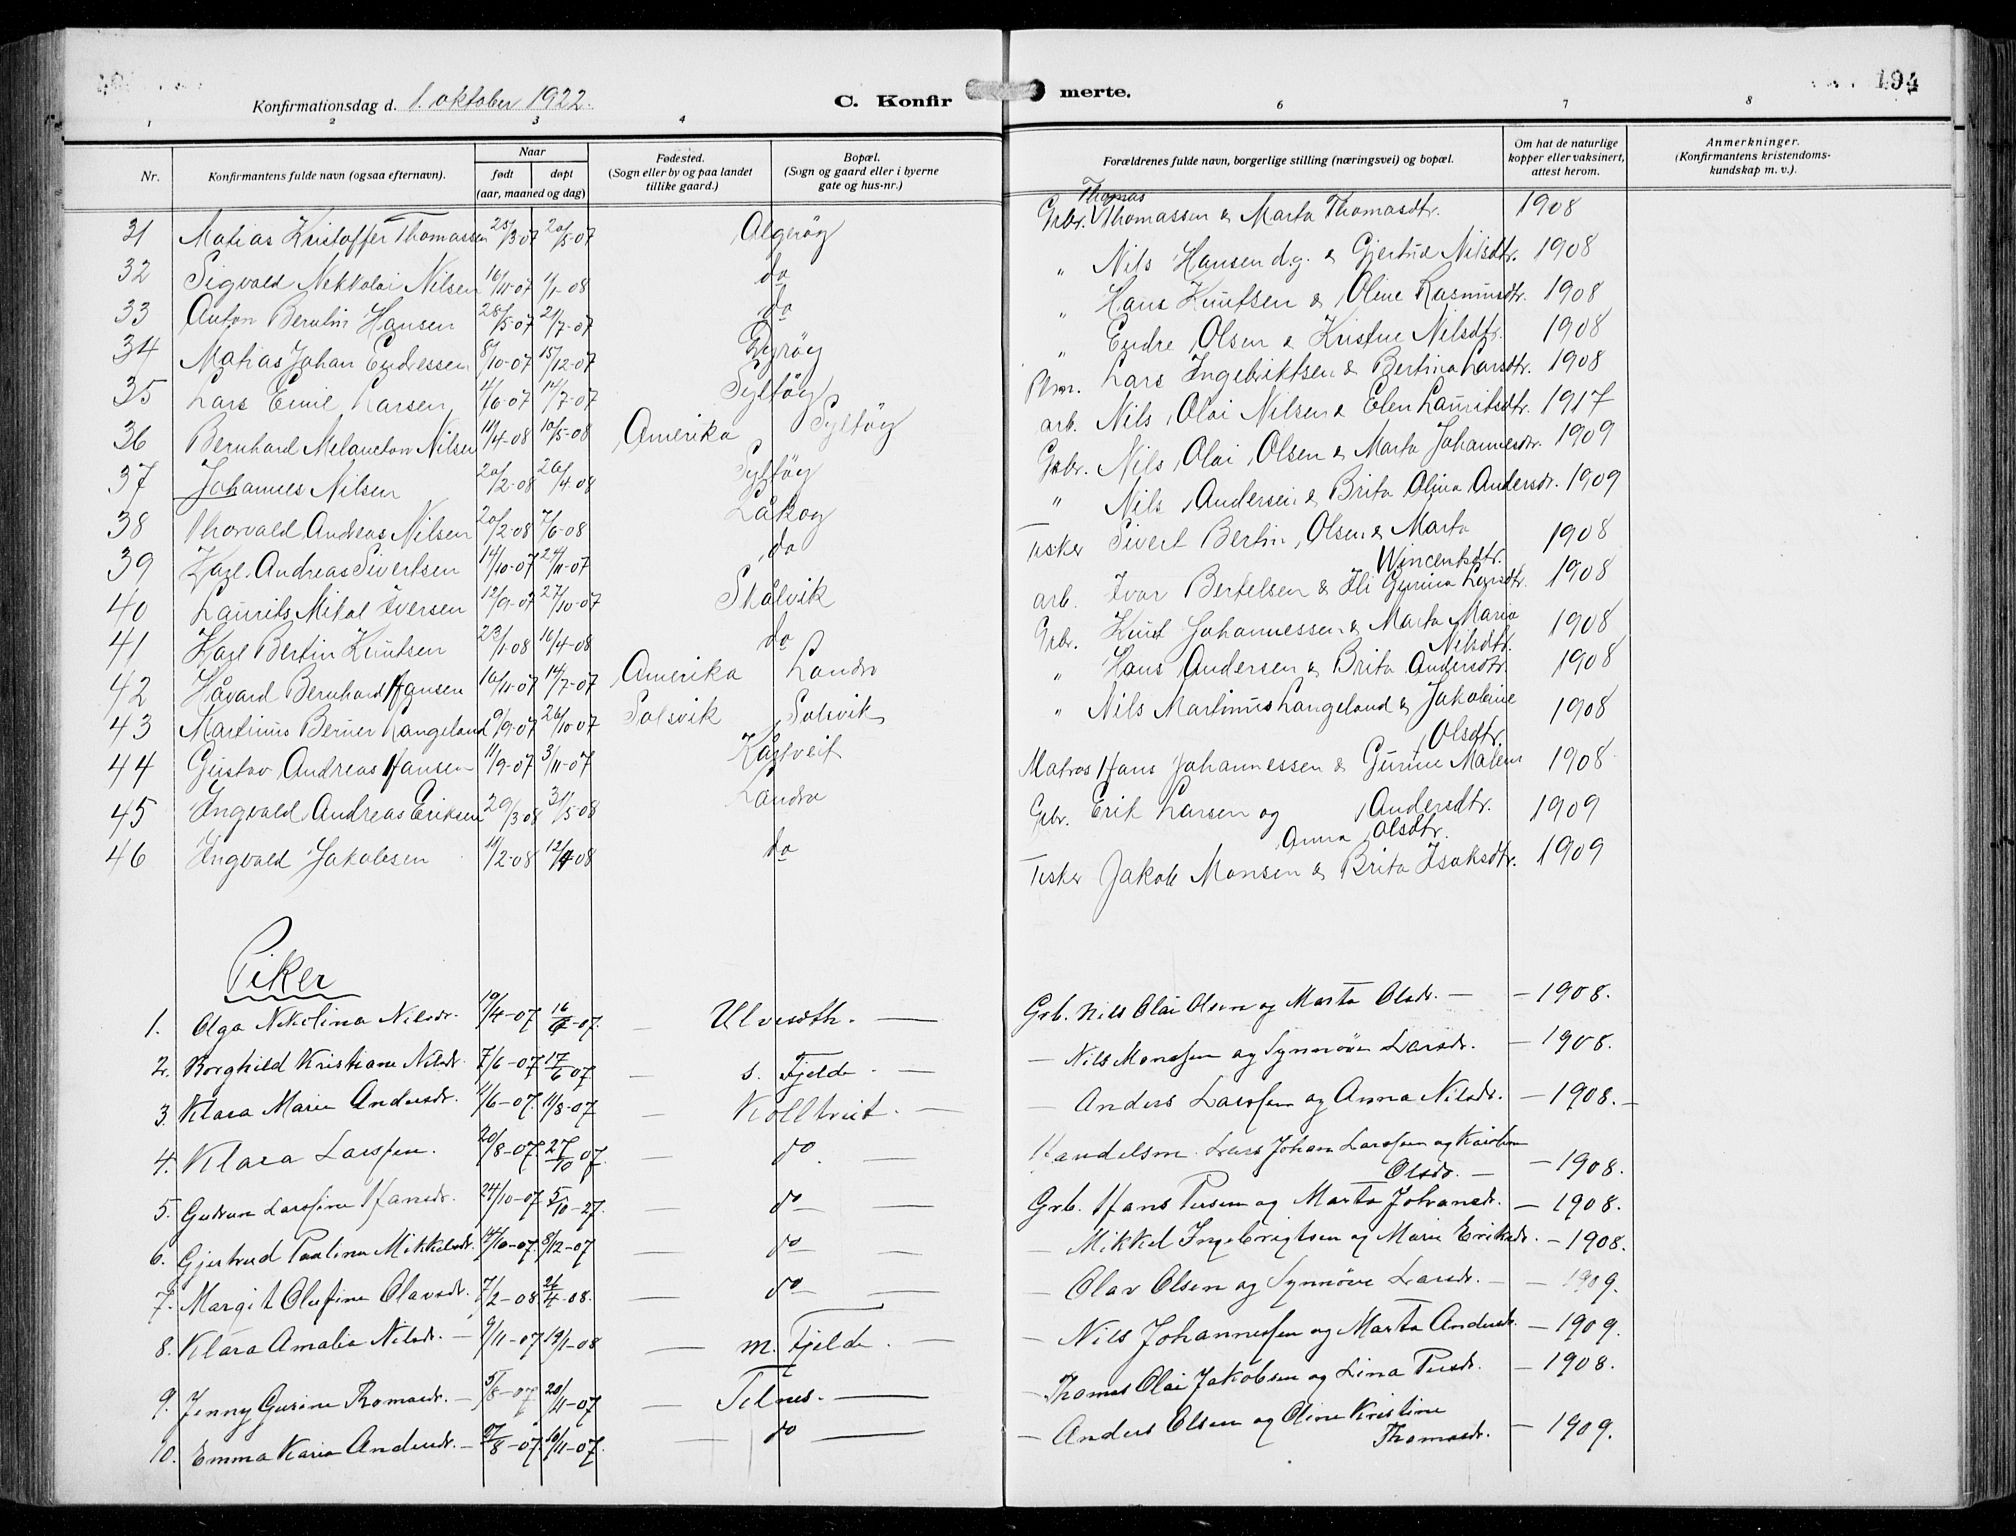 Konfirmationsdag d. 1. oktober 1922.
C. Konfir merte.
194
1 2 3 4 6 7 8
Nr.
Konfirmantens fulde navn (ogsaa efternavn).
Naar
født døpt
(aar, maaned og dag)
Fødested.
(Sogn eller by og paa landet
tillike gaard.)
Bopæl.
(Sogn og gaard eller i byerne
gate og hus-nr.)
Forældrenes fulde navn, borgerlige stilling (næringsvei) og bopæl.
Om hat de naturlige
kopper eller vaksinert,
attest herom.
Anmerkninger.
(Konfirmantens kristendoms-
kundskap m. v.)
Thomas
31 Matias Kristoffer Thomassen 25/3-07 20/5-07 Algerøy Grbr. Thomassen & Marta Thomasdtr. 1908
32 Sigvald Nekkolai Nilsen 16/11-07 1/1-08 do " Nils Hansen d.y. & Gjertrud Nilsdtr. 1908
33 Anton Berntin Hansen 28/5-07 21/7-07 do " Hans Knutsen & Oline Rasmusdtr. 1908
34 Matias Johan Endressen 8/10-07 15/12-07 Geyrøy " Endre Olsen & Kristne Nilsdtr. 1908
35 Lars Emil Larsen 4/6-07 14/7-07 Syltøy Plm. Lars Ingebriktsen & Bertina Larsdtr. 1908
36 Bernhard Melancton Nilsen 19/4-08 10/5-08 Amerika Syltøy arb. Nils Olai Nilsen & Elen Lauritsdtr. 1917
37 Johannes Nilsen 20/2-08 26/4-08 Syltøy Grbr. Nils Olai Olsen & Marta Johannesdtr. 1909
38 Thorvald Andreas Nilsen 20/2-08 7/6-08 Låkøy " Nils Andersen & Brita Olina Andersdtr. 1909
39 Karl Andreas Sivertsen 14/10-07 24/11-07 do Fisker Sivert Bertin Olsen & Marta 1908
Wincentsdtr.
40 Laurits Mikal Iversen 12/9-07 27/10-07 Skålvik arb. Ivar Bertelsen & Eli Gurina Larsdtr. 1908
41 Karl Bertin Knutsen 23/1-08 16/4-08 do Grbr. Knut Johannessen & Marta Maria 1908
Nilsdtr.
42 Håvard Bernhard Hansen 10/11-07 14/7-07 Amerika Landro " Hans Andersen & Brita Andersdtr. 1908
43 Martinus Berner Langeland 9/9-07 26/10-07 Solsvik Solsvik " Nils Martinus Langeland & Jakobine 1908
Olsdtr.
44 Gustav Andreas Hansen 11/9-07 3/11-07 Kastveit Matros Hans Johannessen & Gurine Malene 1908
45 Ingvald Andreas Eriksen 29/3-08 31/5-08 Landro Grbr. Erik Larsen og Andersdtr. 1909
Anna Olsdtr.
46 Ingvald Jakobsen 11/2-08 12/4-08 do Fisker Jakob Monsen & Brita Isaksdtr. 1909
Piker
1. Olga Nikolina Nilsdr. 19/4-07 16/6-07. — Ulvesæth. — Grb. Nils Olai Olsen og Marta Olsdr. — – 1908.
2. Borghild Kristiane Nilsdr. 7/6-07 17/6 07 — s. Fjelde. — — Nils Monssen og Synnøve Larsdr. – 1908.
3. Klara Marie Andersdr. 4/6-07. 11/8-07 — Kolltveit. — — Anders Larssen og Anna Nilsdr. – 1908. –
4. Klara Larssen. 20/8-07 27/10 07. — do. — Handelsm. Lars Johan Larssen og Karoline
Olsdr. — – 1908.
5. Gudrun Larssine Hansdr. 24/10-07. 5/10-27. — do — Grb. Hans Persen og Marta Johansdr. – 1908.
6. Gjertrud Paulina Mikkelsdr. 14/10-07. 8/12-07 — do — — Mikkel Ingebrigtsen og Marie Eriksdr. – 1908.
7. Margit Olufine Olavsdr. 7/2-08 26/4-08. — do — — Olav Olsen og Synnøve Larsdr. – – 1909.
8. Klara Amalia Nilsdr. – 9/11-07 19/1-08 — m. Fjelde. — — Nils Johannessen og Marta Andersdr. – 1909.
9. Jenny Gurine Thomasdr. – 5/8-07 20/11-07 — Telnes. — — Thomas Olai Jakobsen og Lina Persdr. – 1908.
10. Emma Karia Andersdr. – 27/8-07. 10/11-07. — do — — Anders Olsen og Oline Kristine
Thomasdr. – 1909.